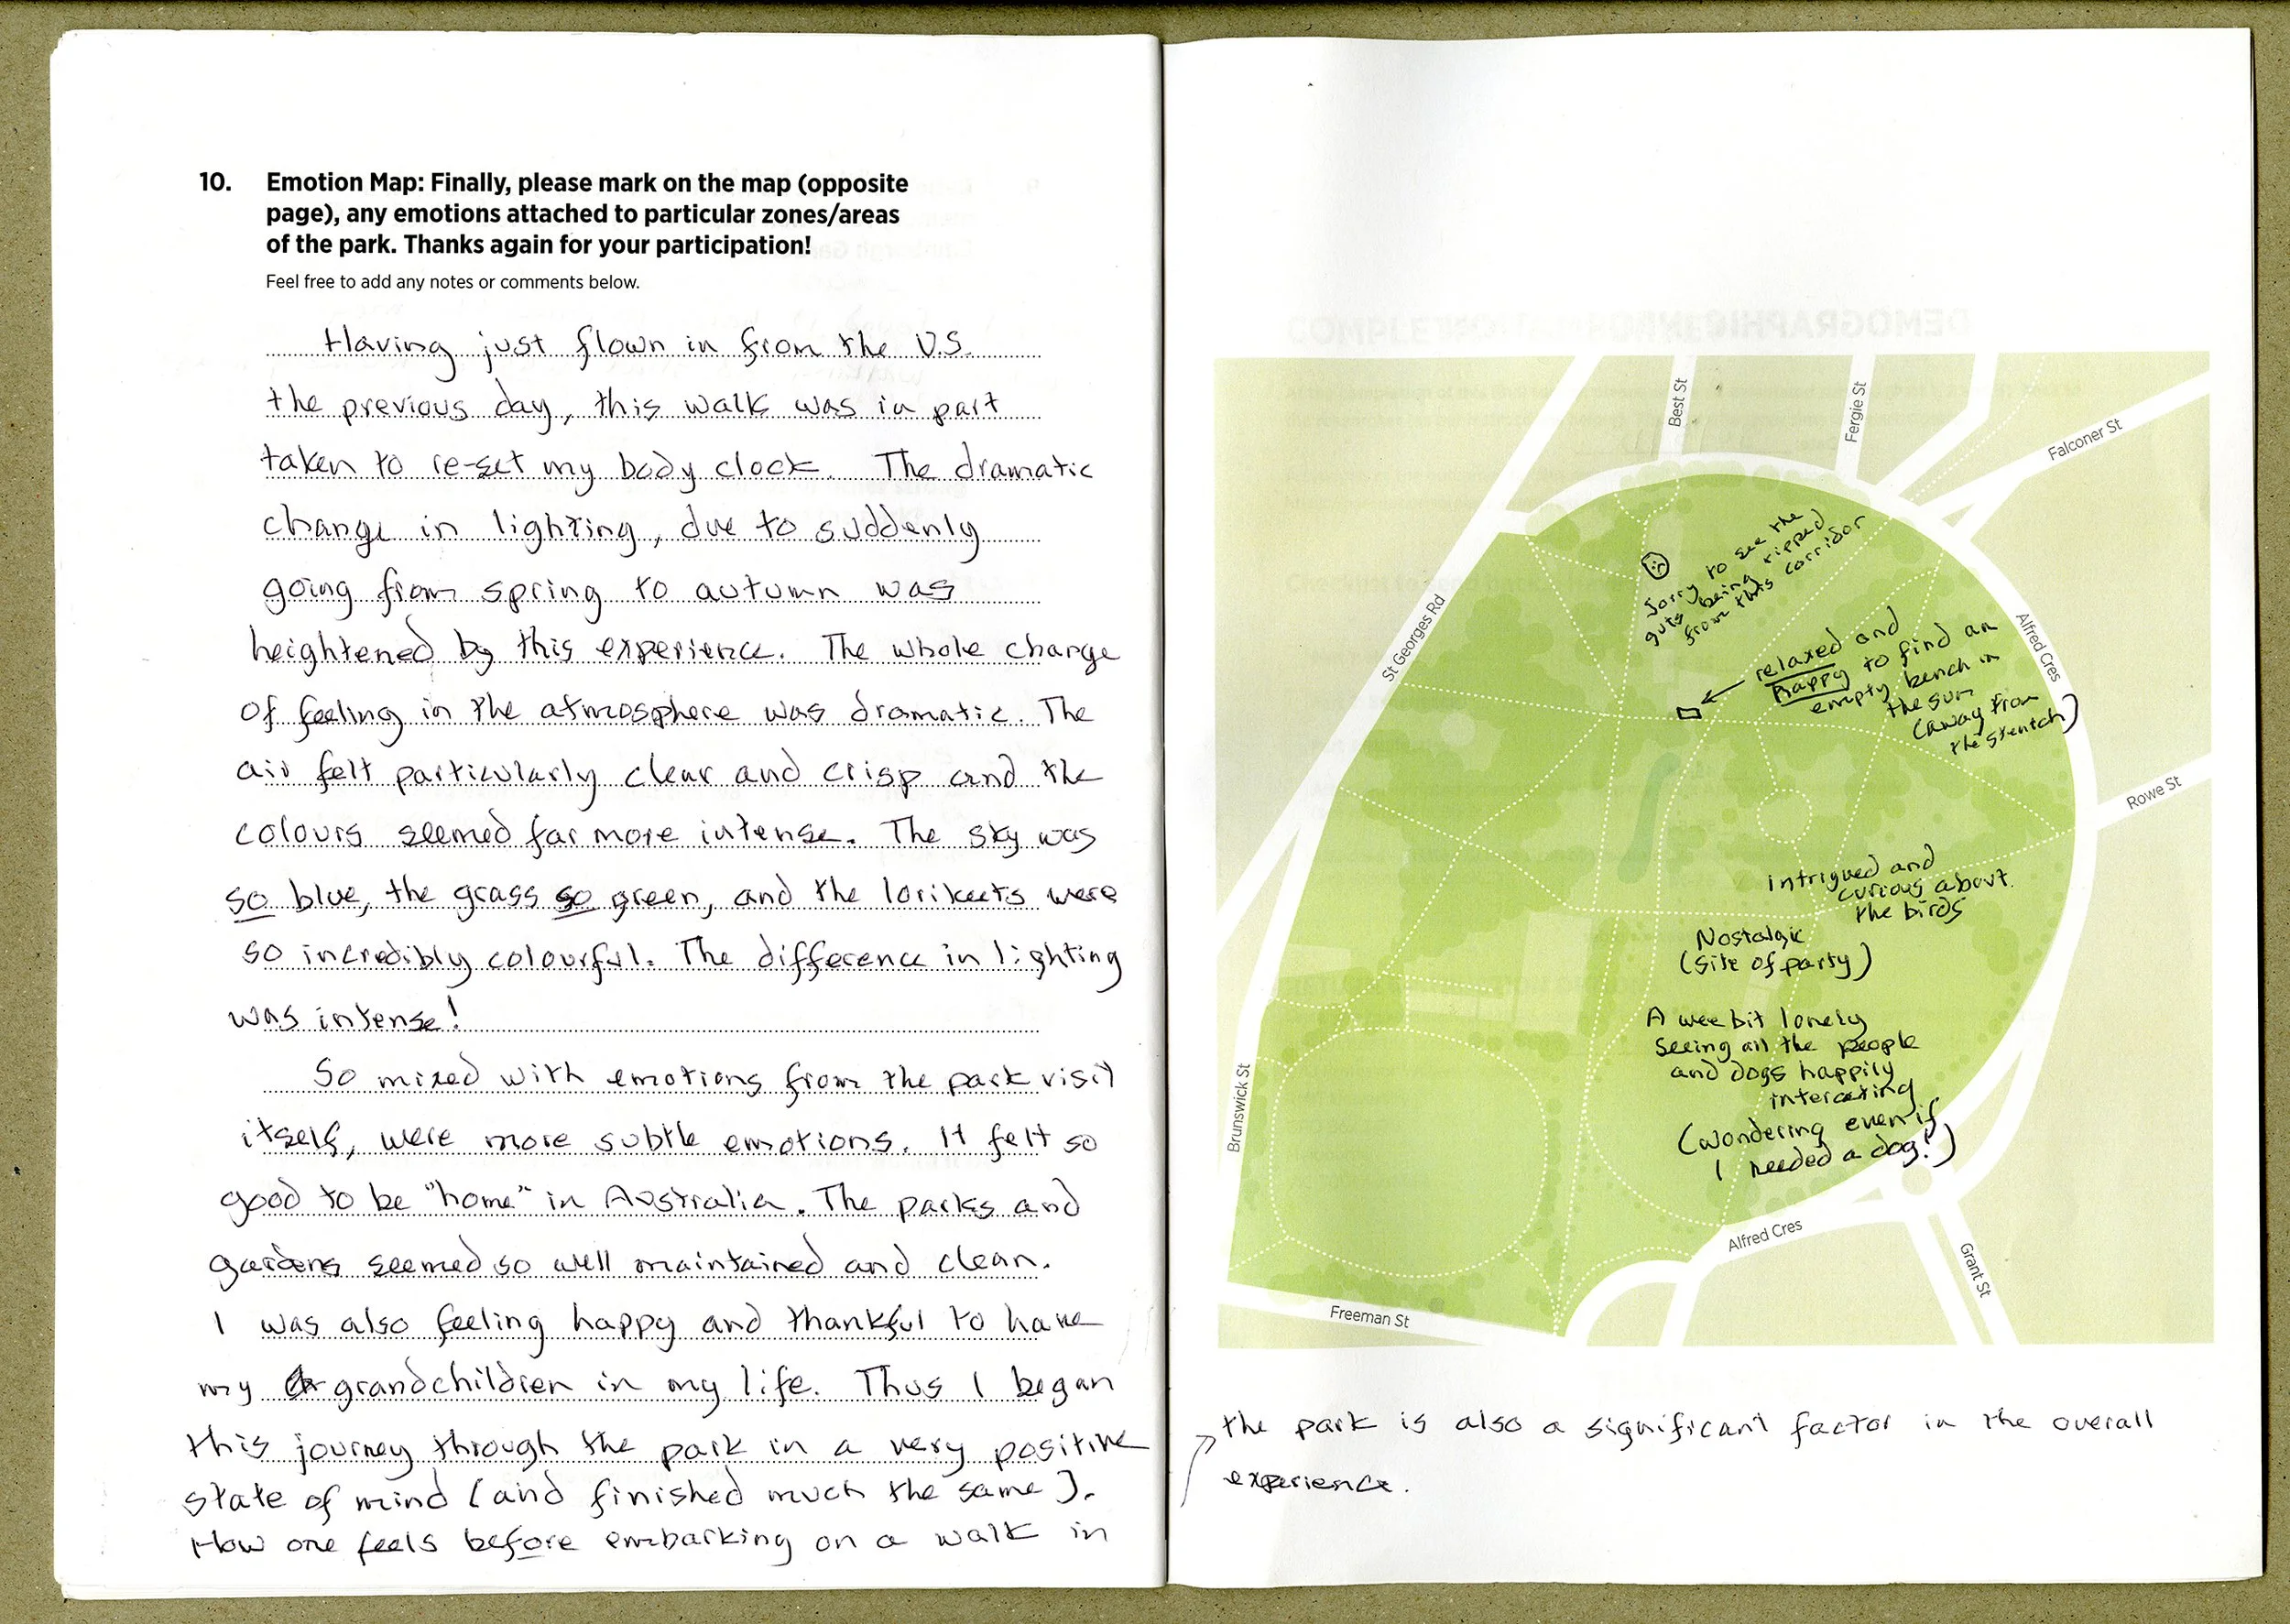 10. Emotion Map: Finally, please mark on the map (opposite
page), any emotions attached to particular zones/areas
of the park. Thanks again for your participation!
Feel free to add any notes or comments below.
Having just flown in from the U.S.
the previous day, this walk was in part
taken to re-set my body clock. The dramatic
change in lighting, due to suddenly
going from spring to autumn was
heightened by this experience. The whole change
of feeling in the atmosphere was dramatic. The
air felt particularly clear and crisp and the
colours seemed far more intense. The sky was
so blue, the grass so green, and the lorikeets were
so incredibly colourful. The difference in lighting
was intense!
So mixed with emotions from the park visit
itself, were more subtle emotions. It felt so
good to be "home" in Australia. The parks and
gardens seemed so well maintained and clean.
I was also feeling happy and thankful to have
my grandchildren in my life. Thus I began
this journey through the park in a very positive
state of mind (and finished much the same).
How one feels before embarking on a walk in
the park is also a significant factor in the overall
experience.
Best St
Fergie St
Falconer St
St Georges Rd
Alfred Cres
Rowe St
Brunswick St
Alfred Cres
Grant St
Freeman St
Sorry to see the
guts being ripped
from this corridor
relaxed and
happy to find an
empty bench in
the sun
(away from
the stench)
intrigued and
curious about
the birds
Nostalgic
(site of party)
A wee bit lonely
seeing all the people
and dogs happily
interacting
(wondering even if
I needed a dog!)